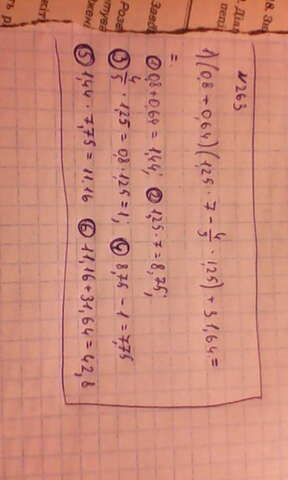 №263
1) (0,8 + 0,64) (1,25 · 7 - 4/5 · 1,25) + 31,64 =
=
① 0,8 + 0,64 = 1,44; ② 1,25 · 7 = 8,75;
③ 4/5 · 1,25 = 0,8 · 1,25 = 1; ④ 8,75 - 1 = 7,75
⑤ 1,44 · 7,75 = 11,16 ⑥ 11,16 + 31,64 = 42,8